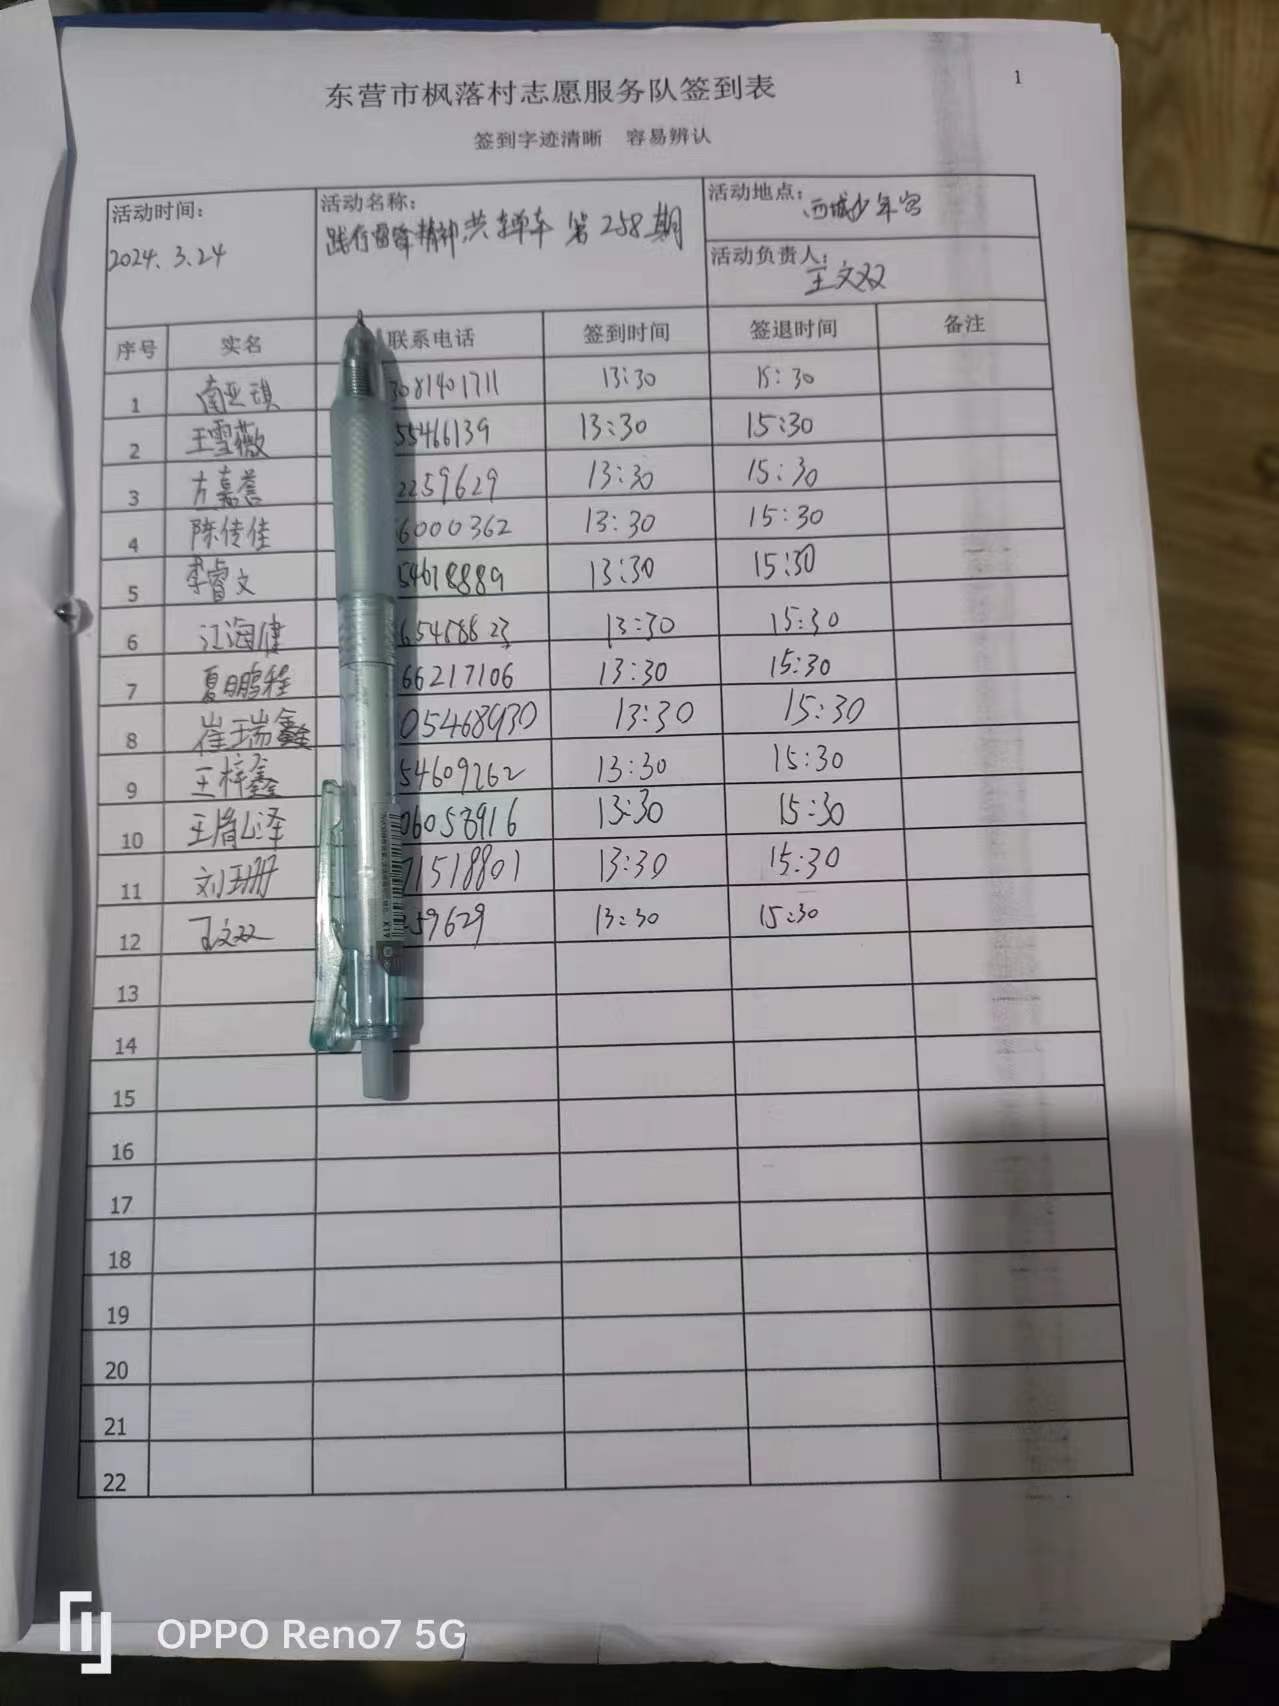 1
东营市枫落村志愿服务队签到表
签到字迹清晰 容易辨认
活动时间: 活动名称: 活动地点: 西城少年宫
2024.3.24 践行雷锋精神,共享单车 第258期
活动负责人: 王文双
序号 实名 联系电话 签到时间 签退时间 备注
1 南亚琪 3081401711 13:30 15:30
2 王雪薇 55466139 13:30 15:30
3 方嘉誉 2259629 13:30 15:30
4 陈传佳 6000362 13:30 15:30
5 李睿文 54678889 13:30 15:30
6 江海健 13:30 15:30
7 夏鹏程 66217106 13:30 15:30
8 崔瑞鑫 05468930 13:30 15:30
9 王梓鑫 54609262 13:30 15:30
10 06053916 13:30 15:30
11 刘玉珊 71518801 13:30 15:30
12 王文双 259629 13:30 15:30
13
14
15
16
17
18
19
20
21
22
OPPO Reno7 5G